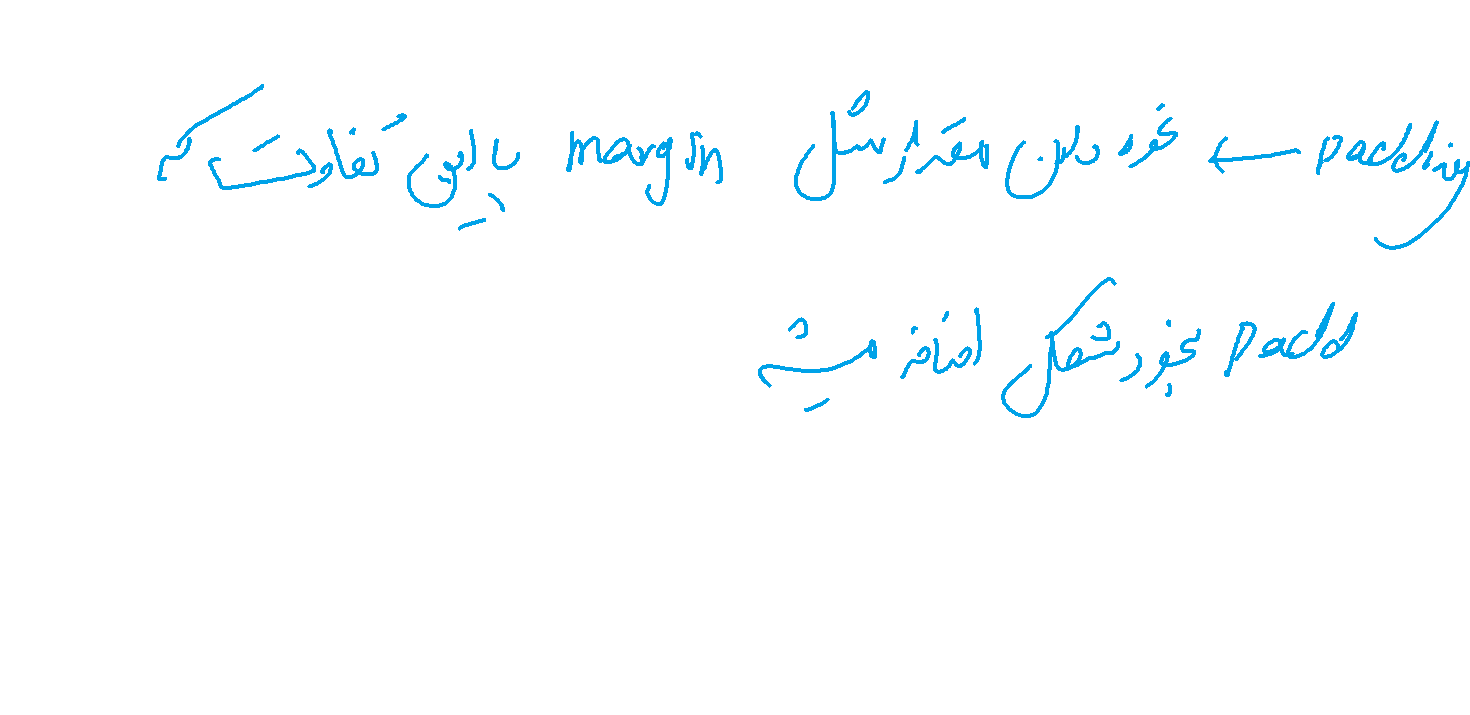 padding ← نحوه دادن مقدار مثل margin با این تفاوت که
padd بخود شکل اضافه میشه